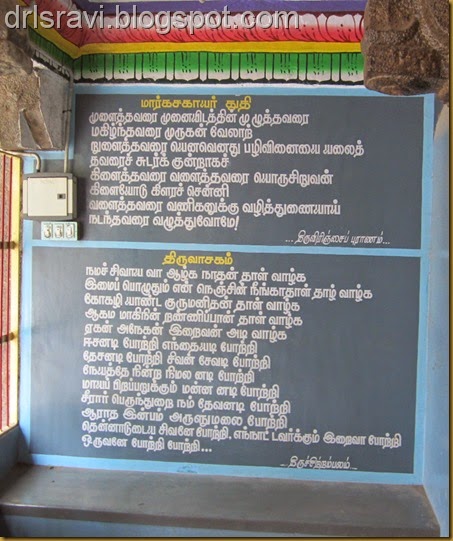 drlsravi.blogspot.com
மார்கசகாயர் துதி
முளைத்தவரை முனைவிடத்தின் மு ழுத்தவரை
மகிழ்ந்தவரை முருகன் வேலாற்
றுளைத்தவரை பழிவினையை யலைத்
தவரைச் சுடர்க் குன்றாகச்
கிளைத்தவரை வளைத்தவரை யொருசிறுவன்
கிளையோடு கிளரச் சென்னி
வளைத்தவரை வணிகனுக்கு வழித்துணையாய்
நடந்தவரை வழுத்துவோமே!
... திருவிரிஞ்சைப் புராணம்.
திருவாசகம்
நமச் சிவாய வா அழ்க நாதன் தாள் வாழ்க
இமைப் பொழுதும் என் நெஞ்சின் நீங்காதாள் தாழ் வாழ்க
கோகழி யாண்ட குருமனிதன் தாள் வாழ்க
ஆகம மாகிநின் றண்ணிப்பான் தாள் வாழ்க
ஏகன் அநேகன் இறைவன் அடி வாழ்க
ஈசனடி போற்றி எந்தையடி போற்றி
தேசனடி போற்றி சிவன் சேவடி போற்றி
நேயத்தே நின்ற நிமல னடி போற்றி
மாயப் பிறப்பறுக்கும் மன்ன னடி போற்றி
சீரார் பெருந்துறை நம் தேவனடி போற்றி
ஆராத இன்பம் அருளுமலை போற்றி
தென்னாடுடைய சிவனே போற்றி, எந்நாட் டவர்க்கும் இறைவா போற்றி
ஒருவனே போற்றி போற்றி...
... திருச்சிற்றம்பலம்.